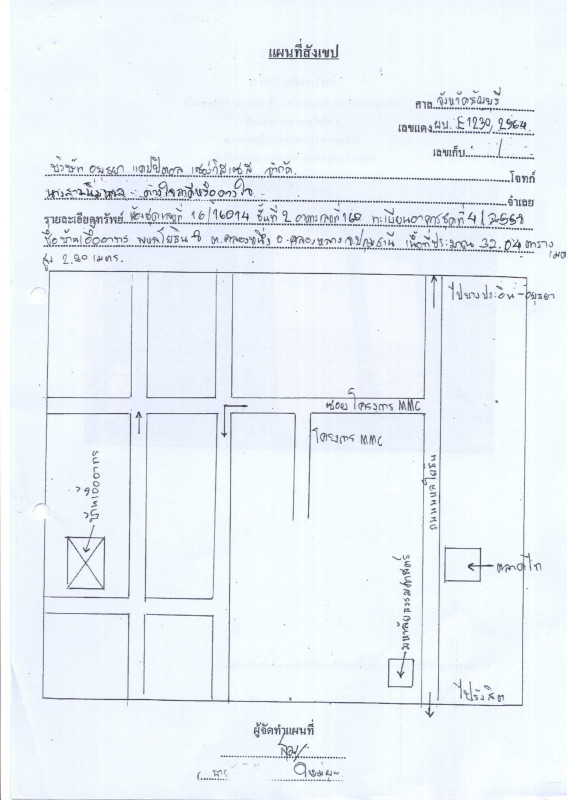 แผนที่สังเขป
ศาล จังหวัดธัญบุรี
เลขแดง ผบ. E1230/2564
เลขเก็บ /
บริษัท อยุธยา แคปปิตอล เซอร์วิสเซส จำกัด โจทก์
นางสาว จำเลย
รายละเอียดทรัพย์ ห้องชุดเลขที่ 16/16014 ชั้นที่ 2 อาคารเลขที่ ทะเบียนอาคารชุดที่ 4/2557
ชื่อ บ้านเอื้ออาทร พหลโยธิน ต.คลองหนึ่ง อ.คลองหลวง จ.ปทุมธานี เนื้อที่ประมาณ 32.04 ตาราง เมตร
สูง 2.20 เมตร.
ไปบางปะอิน-อยุธยา
ซอย โครงการ MMC
โครงการ MMC
บ้านเอื้ออาทร
ถนนพหลโยธิน
ตลาดไท
มหาลัยธรรมศาสตร์
ไปรังสิต
ผู้จัดทำแผนที่
(นาย